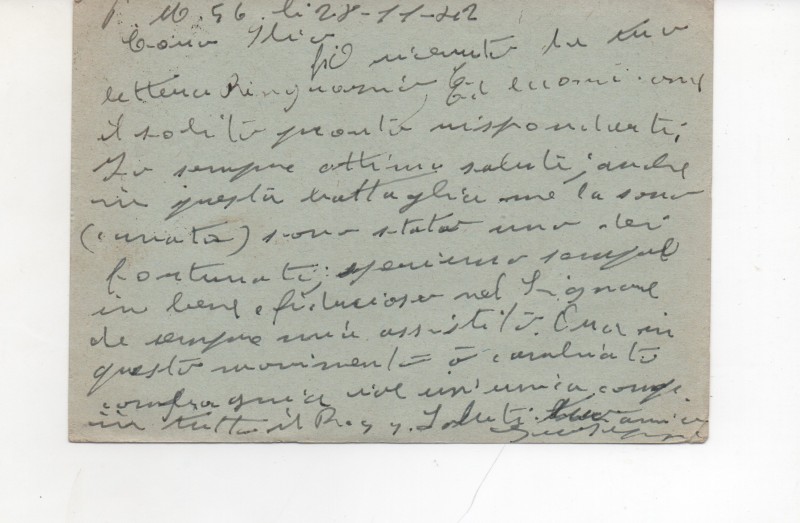 P. M. 56. li 28-11-42
Caro Ilio
Ò ricevuto la tua
lettera Ringrazio, Ed eccomi come
il solito pronto rispondarti;
Io sempre ottima salute; anche
in questa battaglia me la sono
(cavata) sono stato uno dei
fortunati; speriamo sempre
in bene e fiducioso nel Signore
che sempre mi à assistito. Ora in
questo movimento ò cambiato
compagnia un'unica comp.
in tutto il Reg. Saluti tuo amico
Giuseppe